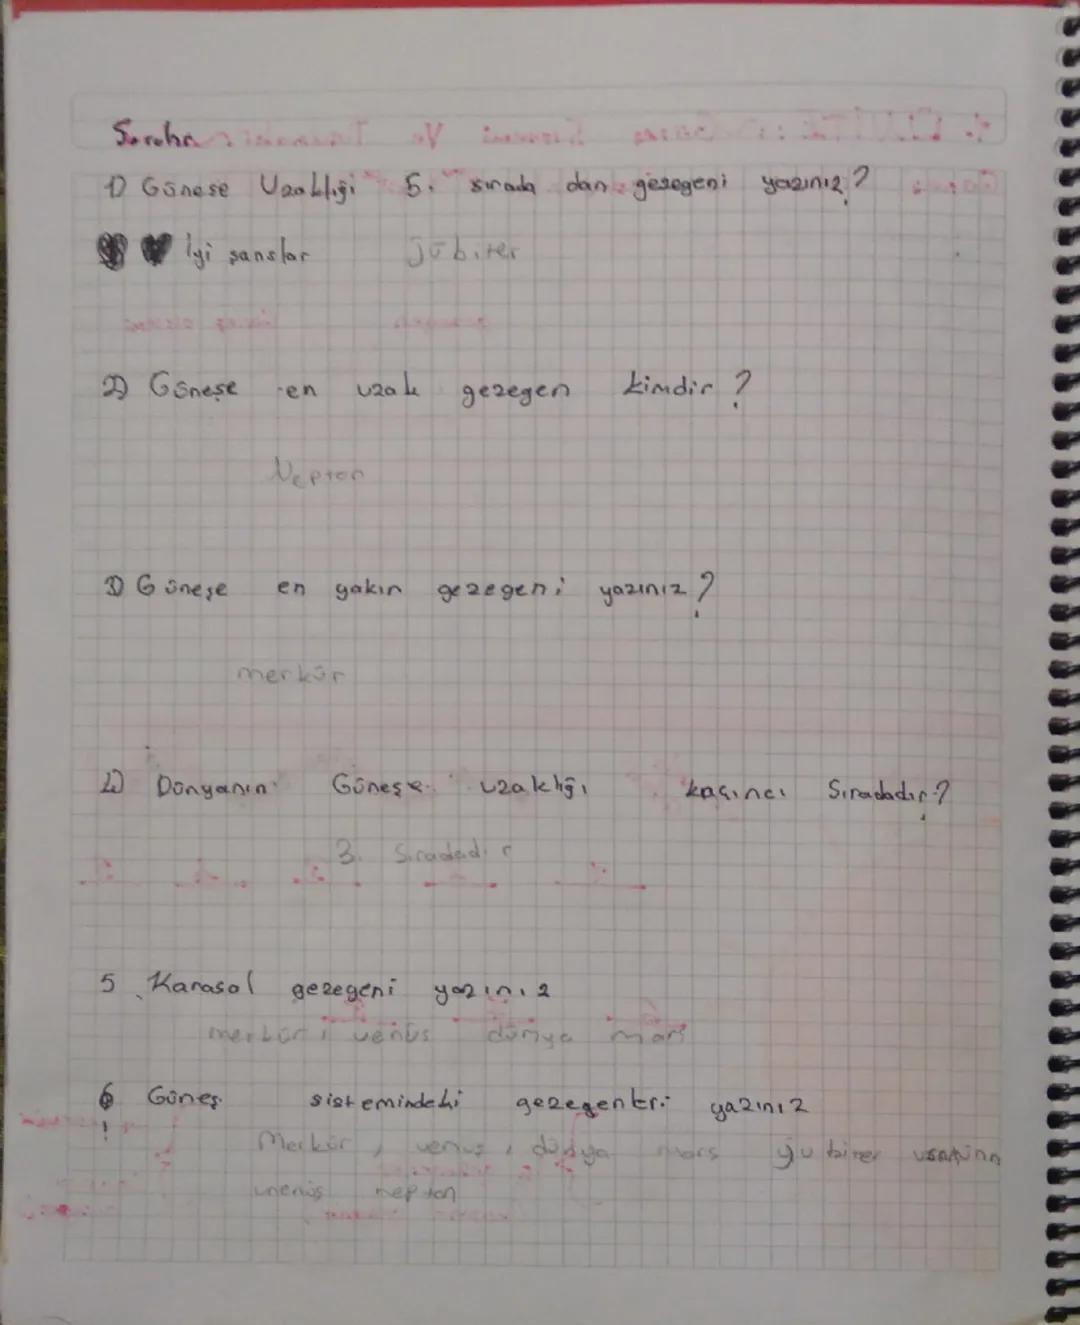 Sorular
1) Güneşe Uzaklığı 5. sırada dan gezegeni yazınız?
iyi şanslar jübiter
2) Güneşe en uzak gezegen kimdir?
Nepton
3) Güneşe en yakın gezegeni yazınız?
merkür
4) Dünyanın Güneşe uzaklığı kaçıncı Sıradadır?
3. Sıradadır
5 Karasal gezegeni yazınız
merkür, venüs dünya mars
6 Güneş sistemindeki gezegenleri yazınız
Merkür, venus, dünya mars jubiter
nepton